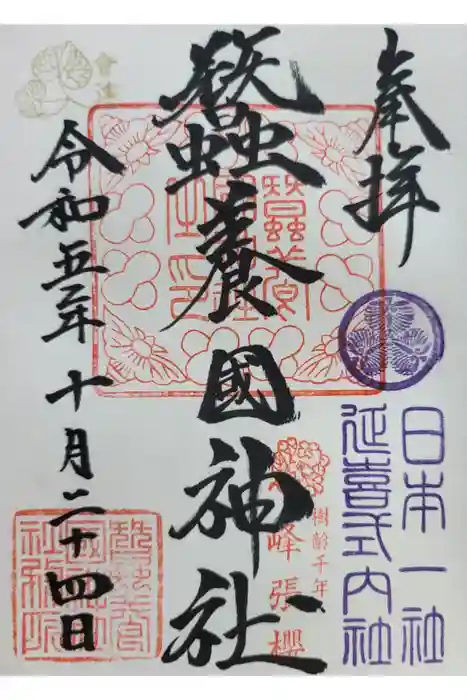 奉拝
日本一社
延喜式内社
蠶養國神社
樹齢千年
峰張櫻
令和五年十月二十四日
會津